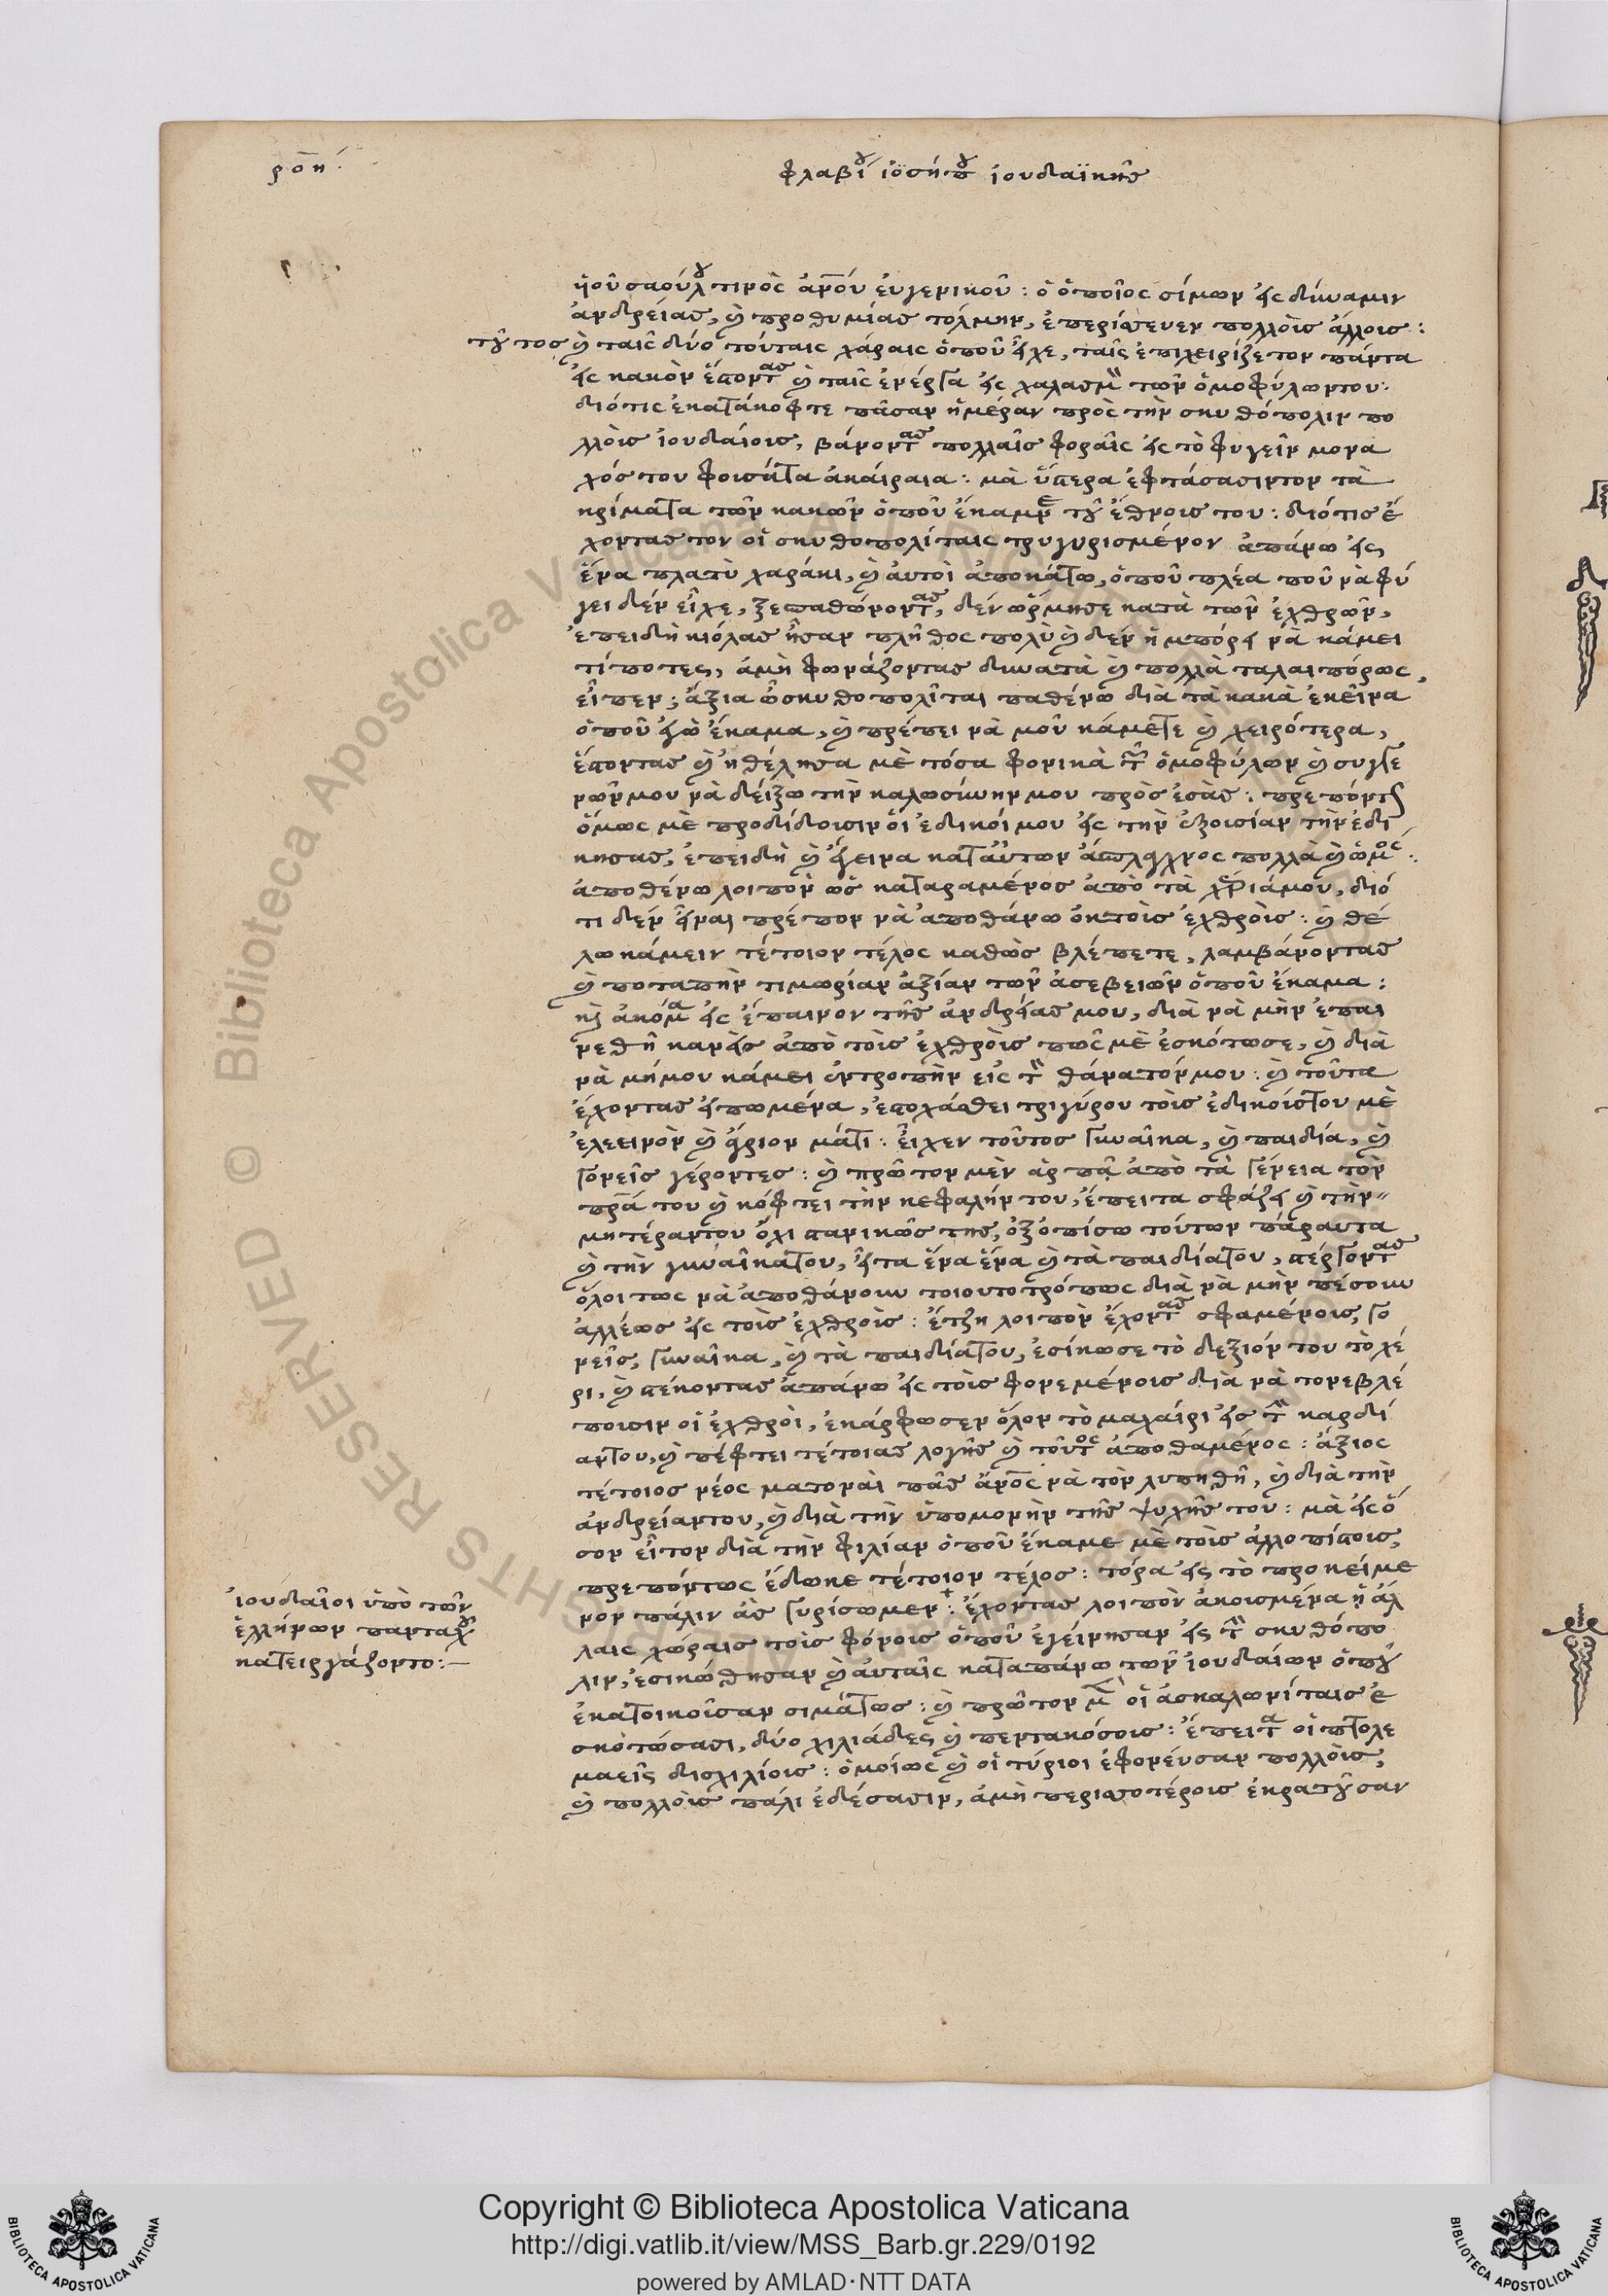 ροη
φλαβίου ἰοσήπου ἰουδαϊκῆς
ὑιοῦ σαούλου τινὸς ἀνθρώπου ἐυγενικοῦ : ὁ ὁποῖος σίμων εἰς δύναμιν
ἀνδρείας, καὶ προθυμίας τόλμην, ἐπερίσευεν πολλοὶς ἄλλοις :
τοῦτος καὶ ταῖς δύο τούταις χάραις ὁποῦ εἶχε, ταῖς ἐπιχειρίζετον πάντα
εἰς κακὸν ἔστοντας καὶ ταῖς ἐνέργα εἰς χαλασμὸν τῶν ὁμοφύλωντου :
διότις ἐκατάκοφτε πᾶσαν ἡμέραν πρὸς τὴν σκυθόπολιν πο
λλοὶς ἰουδαίοις, βάνοντας πολλαῖς φοραῖς εἰς τὸ φυγεῖν μονα
χός του φουσάτα ἀκαίραια : μὰ ὕστερα ἐφτάσασιντον τὰ
κρίματα τῶν κακῶν ὁποῦ ἔκαμνε τοῦ ἔθνοις του : διότις ἔ
χοντας τον οἱ σκυθοπολίταις τρυγυρισμένον ἀπάνω εἰς
ἕνα πλατὺ χαράκι, καὶ ἀυτοὶ ἀποκάτω, ὁποῦ πλέα ποῦ νὰ φύ
γει δὲν εἶχε, ξεσπαθώνοντας, δὲν ὥρμησε κατὰ τῶν ἐχθρῶν,
ἐπειδὴ κιόλας ἦσαν πλῆθος πολὺ καὶ δὲν ἠμπόρει νὰ κάμει
τίποτες, ἀμὴ φωνάζοντας δυνατὰ καὶ πολλὰ ταλαιπόρως,
εἶπεν ; ἄξια ὦ σκυθοπολῖται παθένω διὰ τὰ κακὰ ἐκεῖνα
ὁποῦ ἐγὼ ἔκαμα, καὶ πρέπει νὰ μοῦ κάμετε καὶ χειρότερα,
ἔστοντας καὶ ἠθέλησα μὲ τόσα φονικὰ τῶν ὁμοφύλων καὶ συγγε
νῶν μου νὰ δείξω τὴν καλωσύνην μου πρὸς ἐσᾶς : πρεπόντως
ὅμως μὲ προδίδουσιν ὁι ἐδικόι μου εἰς τὴν ἐξουσίαν τὴν ἐδι
κησας, ἐπειδὴ καὶ ἔγεινα κατάυτων ἄσπλαγχνος πολλὰ καὶ ὠμός :
ἀποθένω λοιπὸν ὡς καταραμένος ἀπὸ τὰ χέριάμου, διό
τι δὲν εἶναι πρέπον νὰ ἀποθάνω ἐκ τοὶς ἐχθροὶς : καὶ θέ
λω κάμειν τέτοιον τέλος καθὼς βλέπετε, λαμβάνοντας
καὶ ποταπὴν τιμωρίαν ἀξίαν τῶν ἀσεβειῶν ὁποῦ ἔκαμα :
καὶ ἀκόμα εἰς ἔπαινον τῆς ἀνδρείας μου, διὰ νὰ μὴν ἐπαι
νεθῆ κανεὶς ἀπὸ τοὶς ἐχθροὶς πῶς μὲ ἐσκότωσε, καὶ διὰ
νὰ μήμου κάμει ἐντροπὴν εἰς τὸν θάνατόνμου : καὶ τοῦτα
ἔχοντας εἰπωμένα, ἐστοχάσθει τριγύρου τοὶς ἐδικοίςτου μὲ
ἐλεεινὸν καὶ ἄγριον μάτι : εἶχεν τοῦτος γυναῖκα, καὶ παιδία, καὶ
γονεῖς γέροντες : καὶ πρῶτον μὲν ἁρπᾶ ἀπὸ τὰ γένεια τὸν
πατέρα του καὶ κόφτει τὴν κεφαλήν του, ἔπειτα σφάζει καὶ τὴν
μητέραντου ὄχι στανικῶς της, ἐξοπίσω τούτων πάραυτα
καὶ τὴν γυναῖκάτου, εἶτα ἕνα ἕνα καὶ τὰ παιδίατου, στέργοντας
ὅλοι τως νὰ ἀποθάνουν τοιουτοτρόπως διὰ νὰ μὴν πέσουν
ἀλλέως εἰς τοὶς ἐχθροὶς : ἔτζη λοιπὸν ἔχοντας σφαμένοις, γο
νεῖς, γυναῖκα, καὶ τὰ παιδίατου, ἐσίκωσε τὸ δεξιόν του τὸ χέ
ρι, καὶ στέκοντας ἀπάνω εἰς τοὶς φονεμένοις διὰ νὰ τονεβλέ
πουσιν οἱ ἐχθροὶ, ἐκάρφωσεν ὅλον τὸ μαχαίρι εἰς τὴν καρδί
αντου, καὶ πέφτει τέτοιας λογῆς καὶ τοῦτος ἀποθαμένος : ἄξιος
τέτοιος νέος ματοναὶ πᾶς ἄνθρωπος νὰ τὸν λυπηθῆ, καὶ διὰ τὴν
ἀνδρείαντου, καὶ διὰ τὴν ὑπομονὴν τῆς ψυχῆς του : μὰ εἰς ὅ
σον εἶτον διὰ τὴν φιλίαν ὁποῦ ἔκαμε μὲ τοὶς ἀλλοπίστοις,
πρεπόντως ἔδωκε τέτοιον τέλος : τόρα εἰς τὸ προκείμε
νον πάλιν ἀς γυρίσωμεν : ἔχοντας λοιπὸν ἀκουσμένα ἡ ἄλ
λαις χώραις τοὶς φόνοις ὁποῦ ἐγείνησαν εἰς τὴν σκυθόπο
λιν, ἐσικώθησαν καὶ ἀυταῖς καταπάνω τῶν ἰουδαίων ὁποῦ
ἐκατοικοῦσαν σιμάτως : καὶ πρῶτον μὲν οἱ ἀσκαλωνίταις ἐ
σκοτώσασι, δύο χιλιάδες καὶ πεντακόσοις : ἔπειτα οἱ πτολε
μαεῖς δισχιλίοις : ὁμοίως καὶ οἱ τύριοι ἐφονεύσαν πολλοὶς,
καὶ πολλοὶς πάλι ἐδέσασιν, ἀμὴ περισσοτέροις ἐκρατοῦσαν
ἰουδαῖοι ὑπὸ τῶν
ἑλλήνων πανταχοῦ
κατειργάζοντο :—
Copyright © Biblioteca Apostolica Vaticana
http://digi.vatlib.it/view/MSS_Barb.gr.229/0192
powered by AMLAD·NTT DATA
BIBLIOTECA APOSTOLICA VATICANA
BIBLIOTECA APOSTOLICA VATICANA